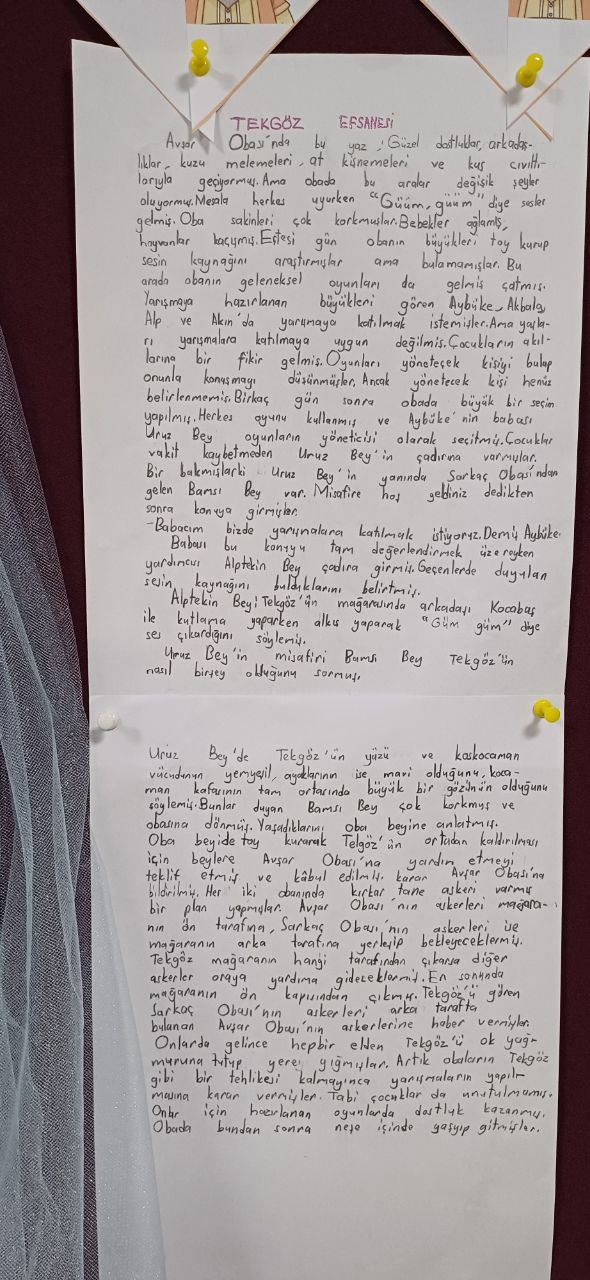 TEKGÖZ EFSANESİ
Avşar Obası'nda bu yaz, Güzel dostluklar, arkadaş-
lıklar, kuzu melemeleri, at kişnemeleri ve kuş cıvıltı-
larıyla geçiyormuş. Ama obada bu aralar değişik şeyler
oluyormuş. Mesela herkes uyurken "Güüm, güüm" diye sesler
gelmiş. Oba sakinleri çok korkmuşlar. Bebekler ağlamış,
hayvanlar kaçışmış. Ertesi gün obanın büyükleri toy kurup
sesin kaynağını araştırmışlar ama bulamamışlar. Bu
arada obanın geleneksel oyunları da gelmiş çatmış.
Yarışmaya hazırlanan büyükleri gören Aybüke, Akbala,
Alp ve Akın'da yarışmaya katılmak istemişler. Ama yaşla-
rı yarışmalara katılmaya uygun değilmiş. Çocukların akıl-
larına bir fikir gelmiş. Oyunları yönetecek kişiyi bulup
onunla konuşmayı düşünmüşler. Ancak yönetecek kişi henüz
belirlenmemiş. Birkaç gün sonra obada büyük bir seçim
yapılmış. Herkes oyunu kullanmış ve Aybüke'nin babası
Uruz Bey oyunların yöneticisi olarak seçilmiş. Çocuklar
vakit kaybetmeden Uruz Bey'in çadırına varmışlar.
Bir bakmışlarki Uruz Bey'in yanında Sarkaç Obası'ndan
gelen Bamsı Bey var. Misafire hoş geldiniz dedikten
sonra konuya girmişler.
-Babacım bizde yarışmalara katılmak istiyoruz. Demiş Aybüke.
Babası bu konuyu tam değerlendirmek üzereyken
yardımcısı Alptekin Bey çadıra girmiş. Geçenlerde duyulan
sesin kaynağını bulduklarını belirtmiş.
Alptekin Bey; Tekgöz'ün mağarasında arkadaşı Kocabaş
ile kutlama yaparken alkış yaparak "Güm güm" diye
ses çıkardığını söylemiş.
Uruz Bey'in misafiri Bamsı Bey Tekgöz'ün
nasıl birşey olduğunu sormuş.
Uruz Bey'de Tekgöz'ün yüzü ve kaskocaman
vücudunun yemyeşil, ayaklarının ise mavi olduğunu, koca-
man kafasının tam ortasında büyük bir gözünün olduğunu
söylemiş. Bunlar duyan Bamsı Bey çok korkmuş ve
obasına dönmüş. Yaşadıklarını oba beyine anlatmış.
Oba beyide toy kurarak Telgöz'ün ortadan kaldırılması
için beylere Avşar Obası'na yardım etmeyi
teklif etmiş ve kâbul edilmiş. karar Avşar Obası'na
bildirilmiş. Her iki obanında kırkar tane askeri varmış
bir plan yapmışlar. Avşar Obası'nın askerleri mağara-
nın ön tarafına, Sarkaç Obası'nın askerleri ise
mağaranın arka tarafına yerleşip bekleyeceklermiş.
Tekgöz mağaranın hangi tarafından çıkarsa diğer
askerler oraya yardıma gideceklermiş. En sonunda
mağaranın ön kapısından çıkmış. Tekgöz'ü gören
Sarkaç Obası'nın askerleri arka tarafta
bulunan Avşar Obası'nın askerlerine haber vermişler.
Onlarda gelince hepbir elden Tekgöz'ü ok yağ-
muruna tutup yere yığmışlar. Artık obaların Tekgöz
gibi bir tehlikesi kalmayınca yarışmaların yapıl-
masına karar vermişler. Tabi çocuklar da unutulmamış.
Onlar için hazırlanan oyunlarda dostluk kazanmış.
Obada bundan sonra neşe içinde yaşayıp gitmişler.